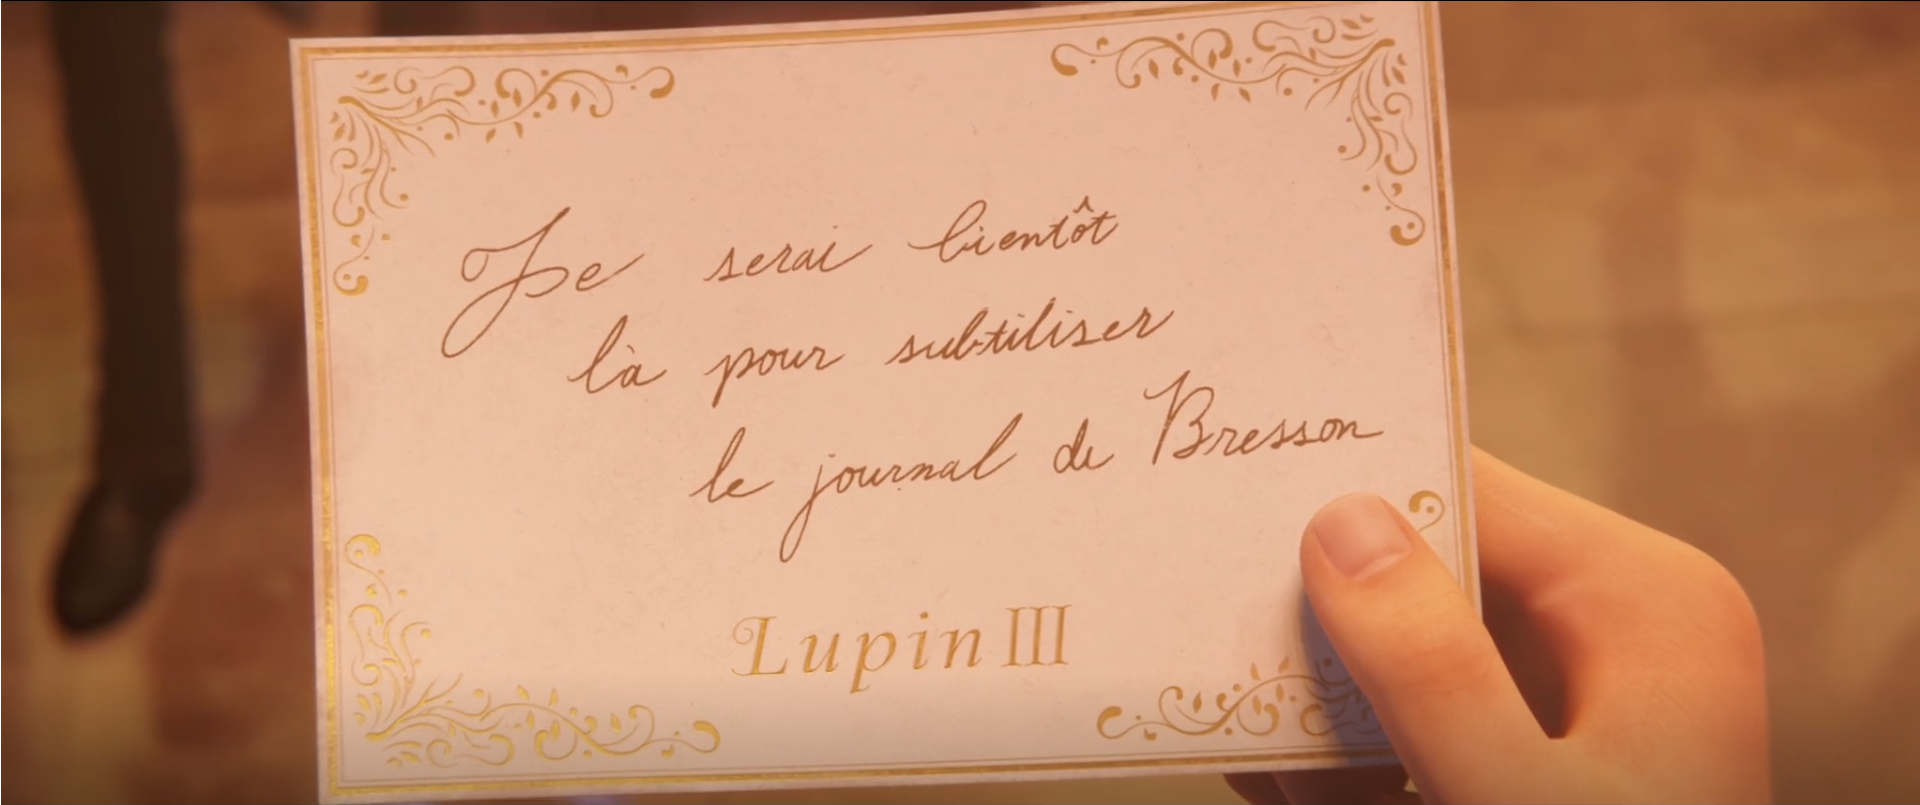 Je serai bientôt
là pour subtiliser
le journal de Bresson
Lupin III